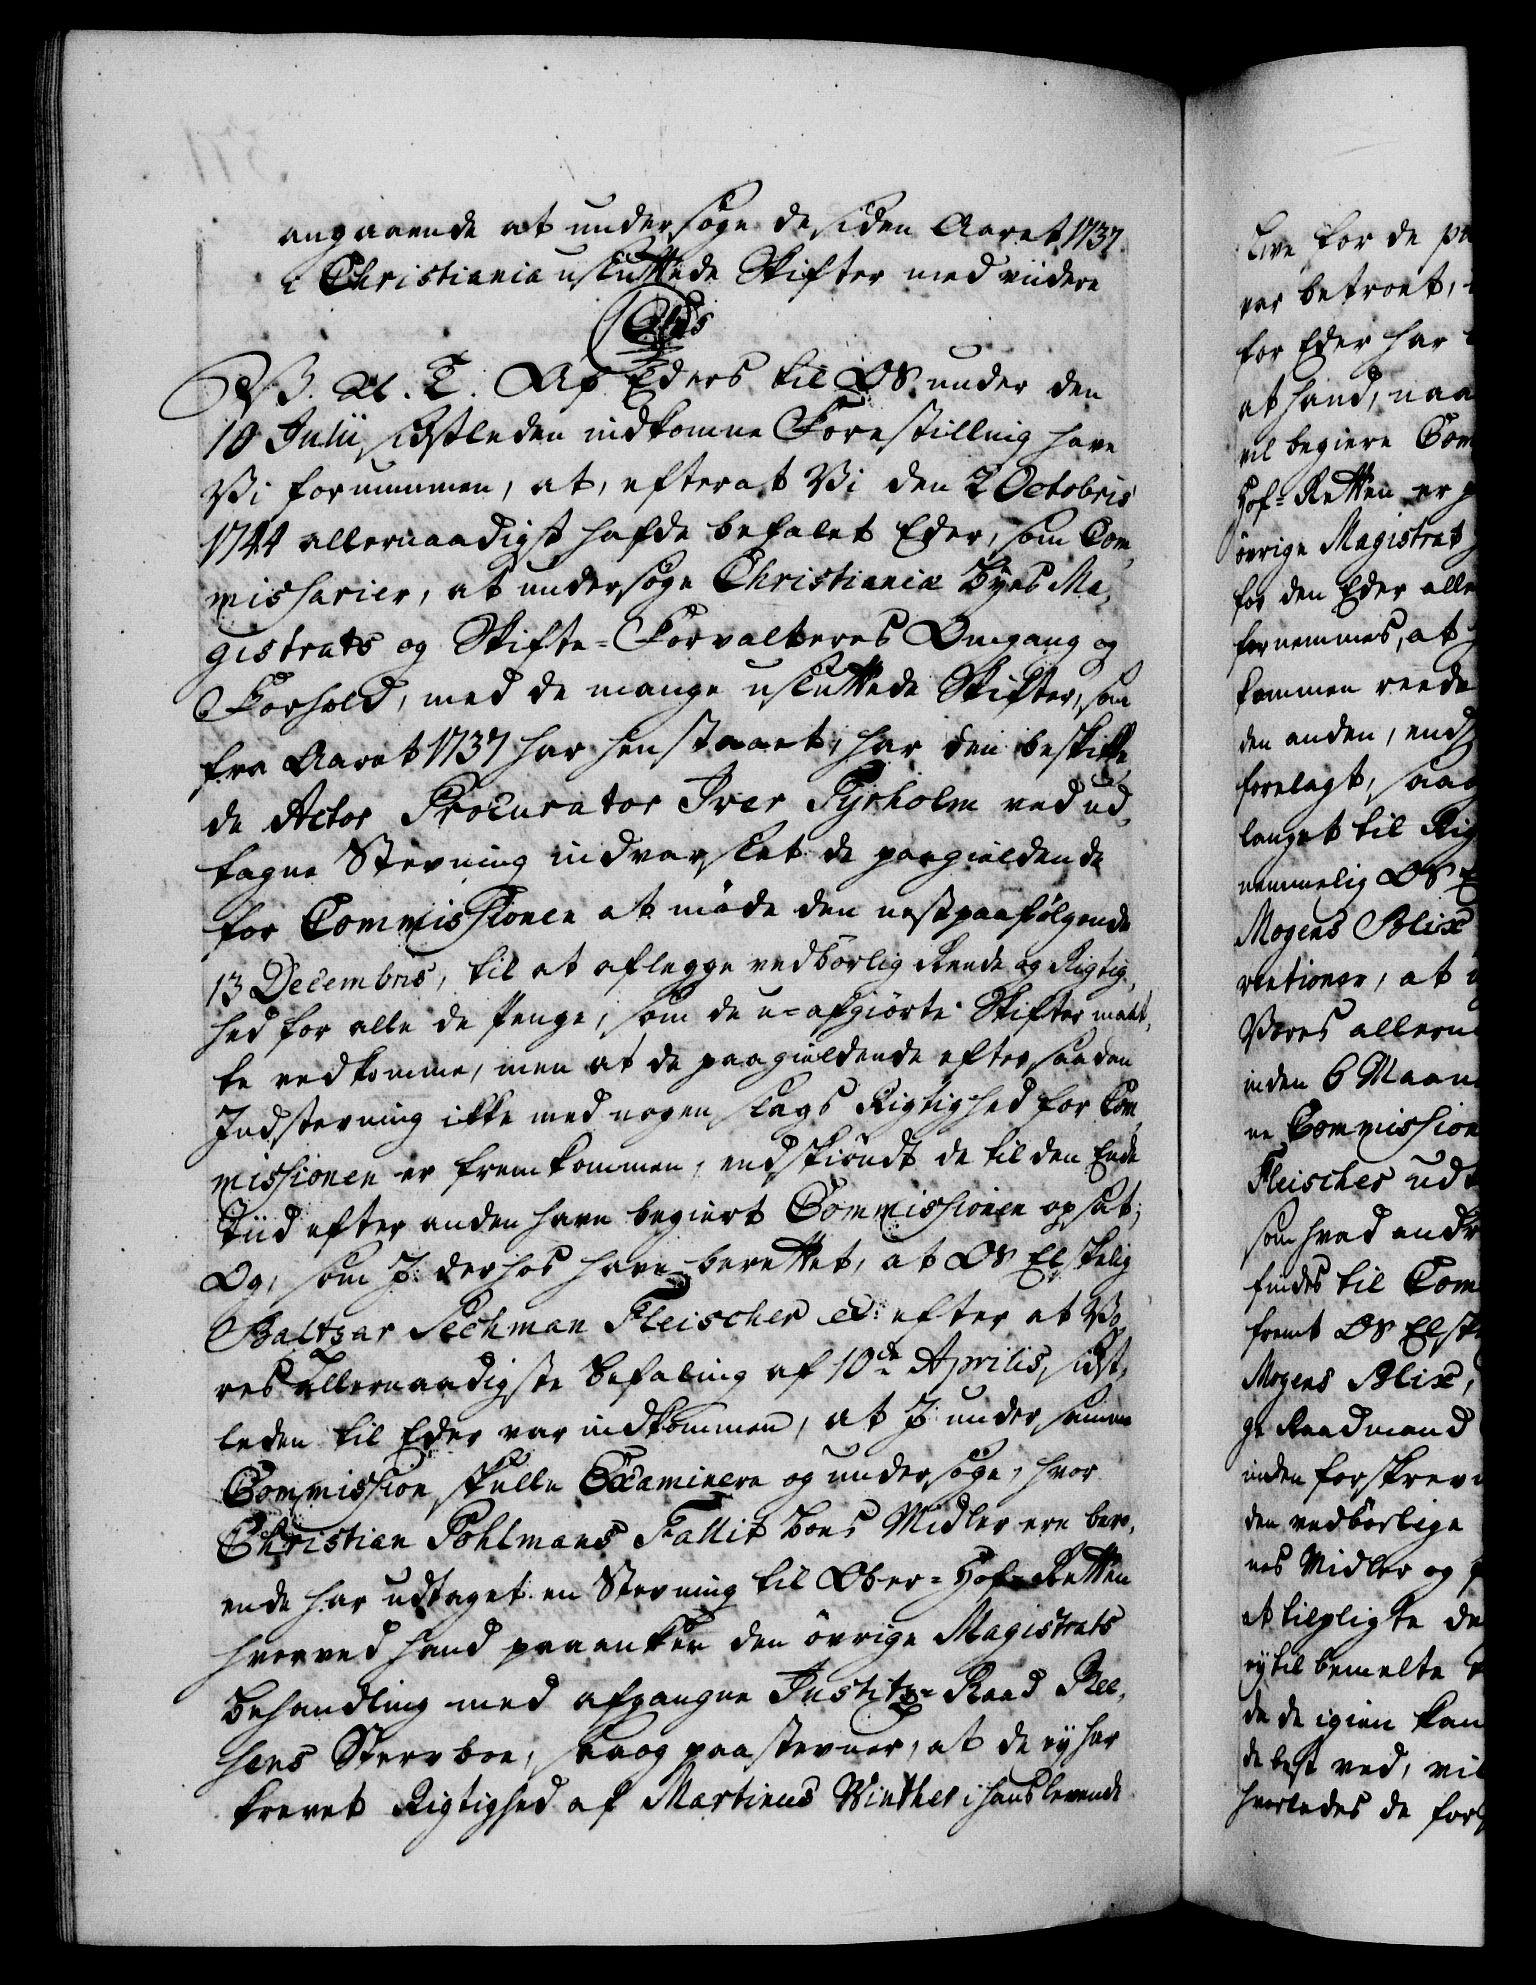 angaaende at undersøge de siden Aaret 1737
i Christiania usluttede Skifter med viidere
V. A. T. Af Eders til Os under den
10 Julii sidstleden indkomne Forestilling have
Vi fornummen, at, efterat Vi den 2 Octobris
1744 allernaadigst hafde befalet Eder, som Com-
missarier, at undersøge Christiania Byes Ma-
gistrats og Skifte-Forvalteres Omgang og
Forhold, med de mange usluttede Skifter, som
fra Aaret 1737 har henstaaet, har den beskikke-
de Actor Procurator Iver Tyrholm ved ud-
tagne Stevning indvarslet de paagieldende
for Commissionen at møde den nestpaafølgende
13 Decembris, til at aflegge vedbørlig Reede og Rigtig-
hed for alle de Penge, som de u-afgiorte Skifter maat-
te vedkomme, men at de paagieldende efter saadan
Indstevning ikke med nogen slags Rigtighed for Com-
missionen er fremkommen, endskiøndt de til den Ende
Tiid efter anden have begiert Commissionen opsat;
Og, som I derhos have berettet, at Os Elskelig
Baltzar Sechman Fleischer etc: efter at Vo-
res allernaadigste Befaling af 10de Aprilis sidst-
leden til Eder var indkommen, at I under samme
Commission skulle Examinere og undersøge, hvor
Christian Pohlmans Fallit Boes Midler ere bero-
ende har udtaget en Stevning til Ober-Hof-Retten
hvorved hand paaanker den øvrige Magistrats
Behandling med afgangne Justitz-Raad Ree-
hens Sterrboe, saa og paastevner, at de ey har
krevet Rigtighed af Martinus Winther i hans levende
live for de
var betroet,
for Eder har
at hand, naa
vil begiere Com
Hof-Retten er
øvrige Magistrat
for den Eder alle
fornemmes, at
kommen reede
den anden, ends
forelagt, saa
langet til Rig
nemmelig Os
Mogens Blix
rketioner, at
Vores allern
inden 6 Maan
ne Commission
Fleischer ud
som hvad andr
findes til Com
fremt Os Elsk
Mogens Blix,
ge Raadmænd
inden forskrevn
den vedbørlige
nes Midler og
at tilpligte de
ey til bemelte
de de igien kan
de best ved, vil
hvorledes de for